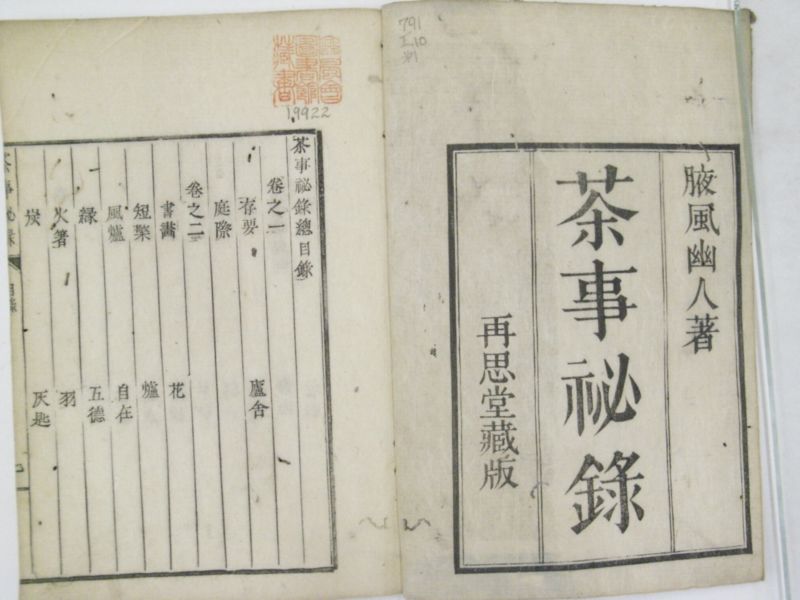 791
腋風幽人著
茶事祕錄
再思堂藏版
19922
茶事祕錄總目錄
卷之一
存要 廬舍
庭除
卷之二
書畵 花
短檠 爐
風爐 自在
緑 五德
火箸 羽
炭 灰匙
茶事祕録 目錄